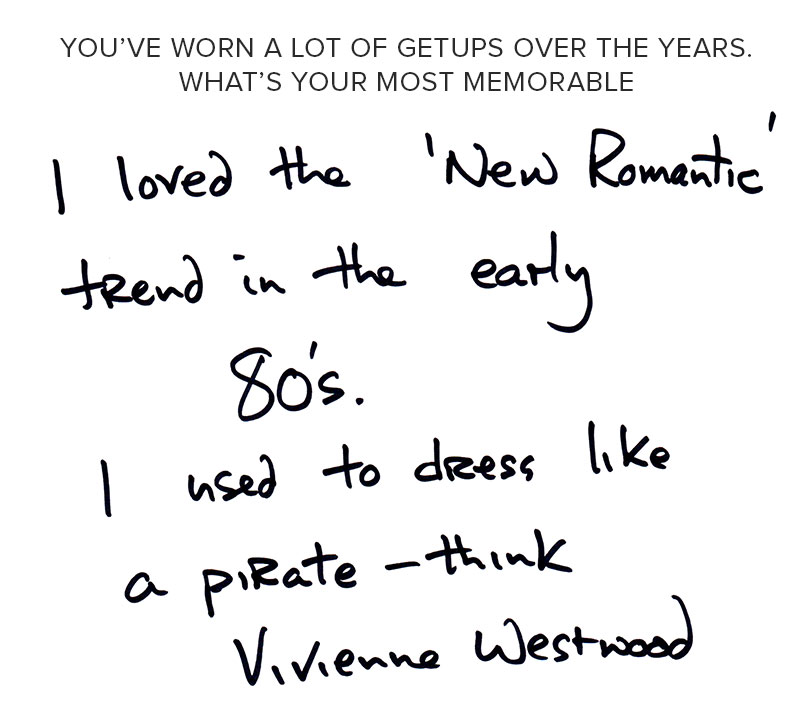 YOU’VE WORN A LOT OF GETUPS OVER THE YEARS.
WHAT’S YOUR MOST MEMORABLE
I loved the 'New Romantic'
trend in the early
80's.
I used to dress like
a pirate – think
Vivienne Westwood